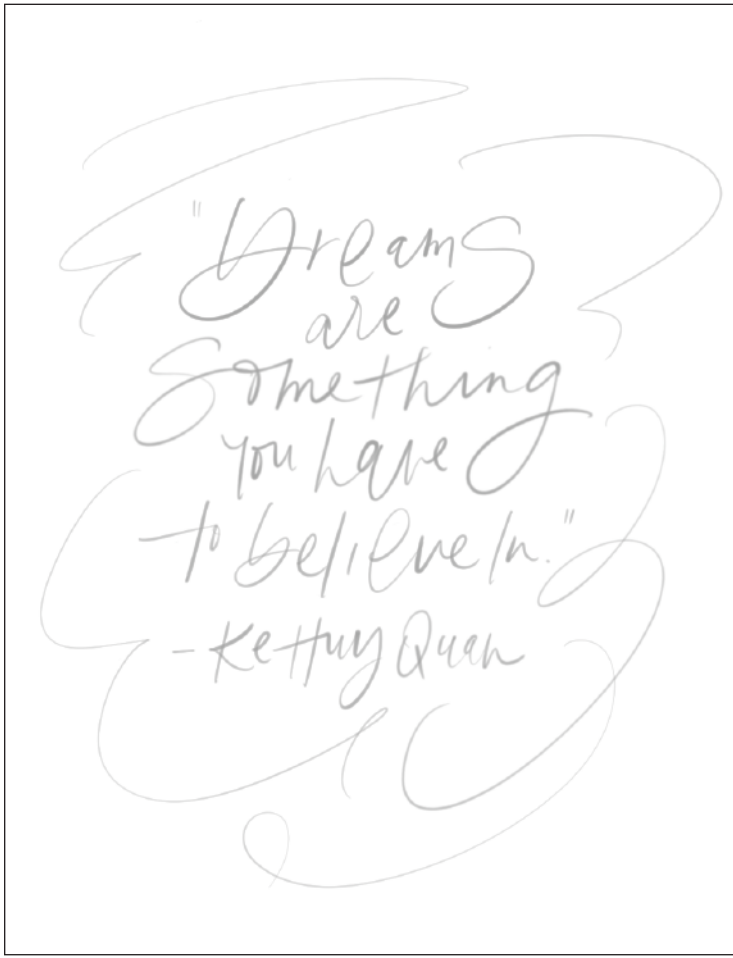 "Dreams
are
Something
you have
to believe in."
- Ke Huy Quan